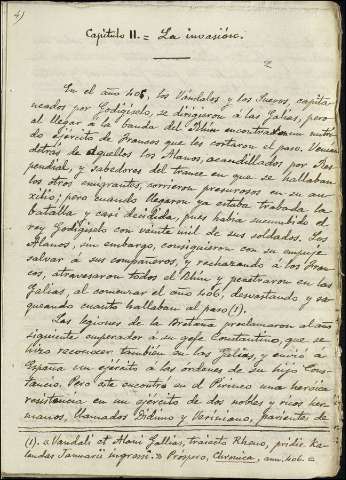 4)
Capítulo II. = La invasión.
2
En el año 405, los Vándalos y los Suevos, capita-
neados por Godigiselo, se dirigieron á las Galias, pero
al llegar á la banda del Rhin encontraron un nutri-
do ejército de Francos que les cortaron el paso. Venían
detrás de aquellos los Alanos, acaudillados por Res-
pendial, y sabedores del trance en que se hallaban
los otros emigrantes, corrieron presurosos en su au-
xilio; pero cuando llegaron ya estaba trabada la
batalla y casi decidida, pues había sucumbido el
rey Godigiselo con veinte mil de sus soldados. Los
Alanos, sin embargo, consiguieron con su empuje
salvar á sus compañeros, y rechazando á los Fran-
cos, atravesaron todos el Rhin y penetraron en las
Galias, al comenzar el año 406, devastando y sa-
queando cuanto hallaban al paso (1).
Las legiones de la Bretaña proclamaron al año
siguiente emperador á su gefe Constantino, que se
hizo reconocer también en las Galias, y envió á
España un ejército á las órdenes de su hijo Cons-
tancio. Pero este encontró en el Pirineo una heroica
resistencia en un ejército de dos nobles y ricos her-
manos, llamados Didimo y Veriniano, parientes de
(1). « Vandali et Alani Gallias, trajecto Rheno, pridie Ka-
lendas Januarii ingressi. » Próspero, Chronica, ann. 406. =